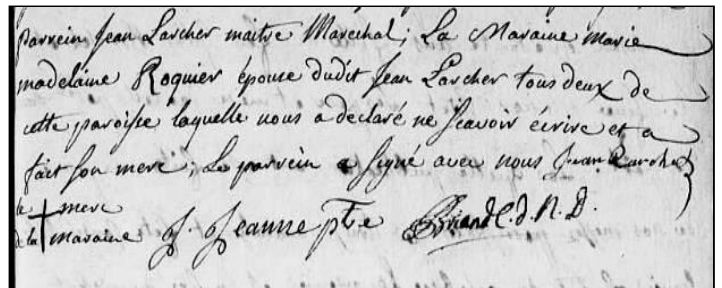 parrein jean Larcher maitre Marechal; La Maraine marie
madelaine Roquier épouse dudit jean Larcher tous deux de
cette paroisse laquelle nous a declaré ne sçavoir écrire et a
fait son merc; Le parrein a signé avec nous Jean Larcher
le + merc
de la maraine J. Jeanne ptre Briand C. d. N. D.